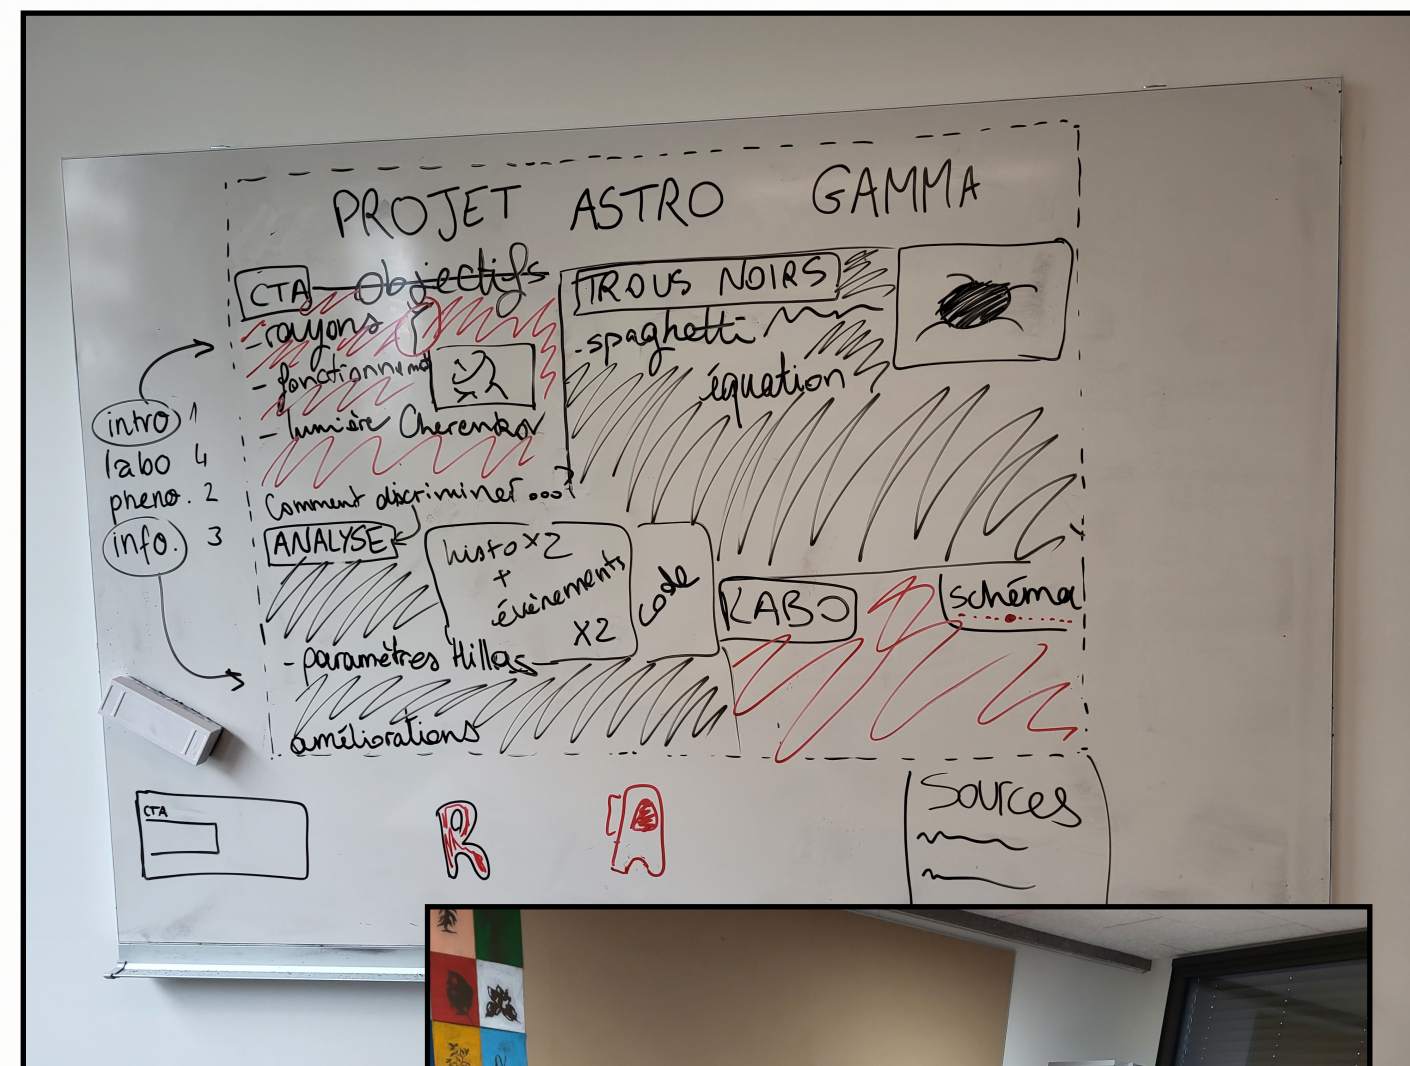 PROJET ASTRO GAMMA
CTA objectifs
- rayons
- fonctionnement
- lumière Cherenkov
TROUS NOIRS
- spaghetti
équation
intro 1
labo 4
pheno. 2
info. 3
Comment discriminer ...?
ANALYSE
histo x2
+
évènements
x2
code
- paramètres Hillas
améliorations
LABO
schéma
CTA
R
A
Sources